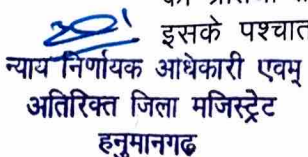 इसके पश्चात
न्याय निर्णायक अधिकारी एवम्
अतिरिक्त जिला मजिस्ट्रेट
हनुमानगढ